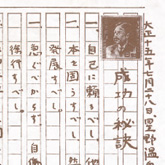 大正十五年七月廿八日、星野温
成功の秘訣
一、自己に頼るべし、
一、本を固うすべし、
發展すべし。
一、急ぐべからず、自働
徐行すべし。